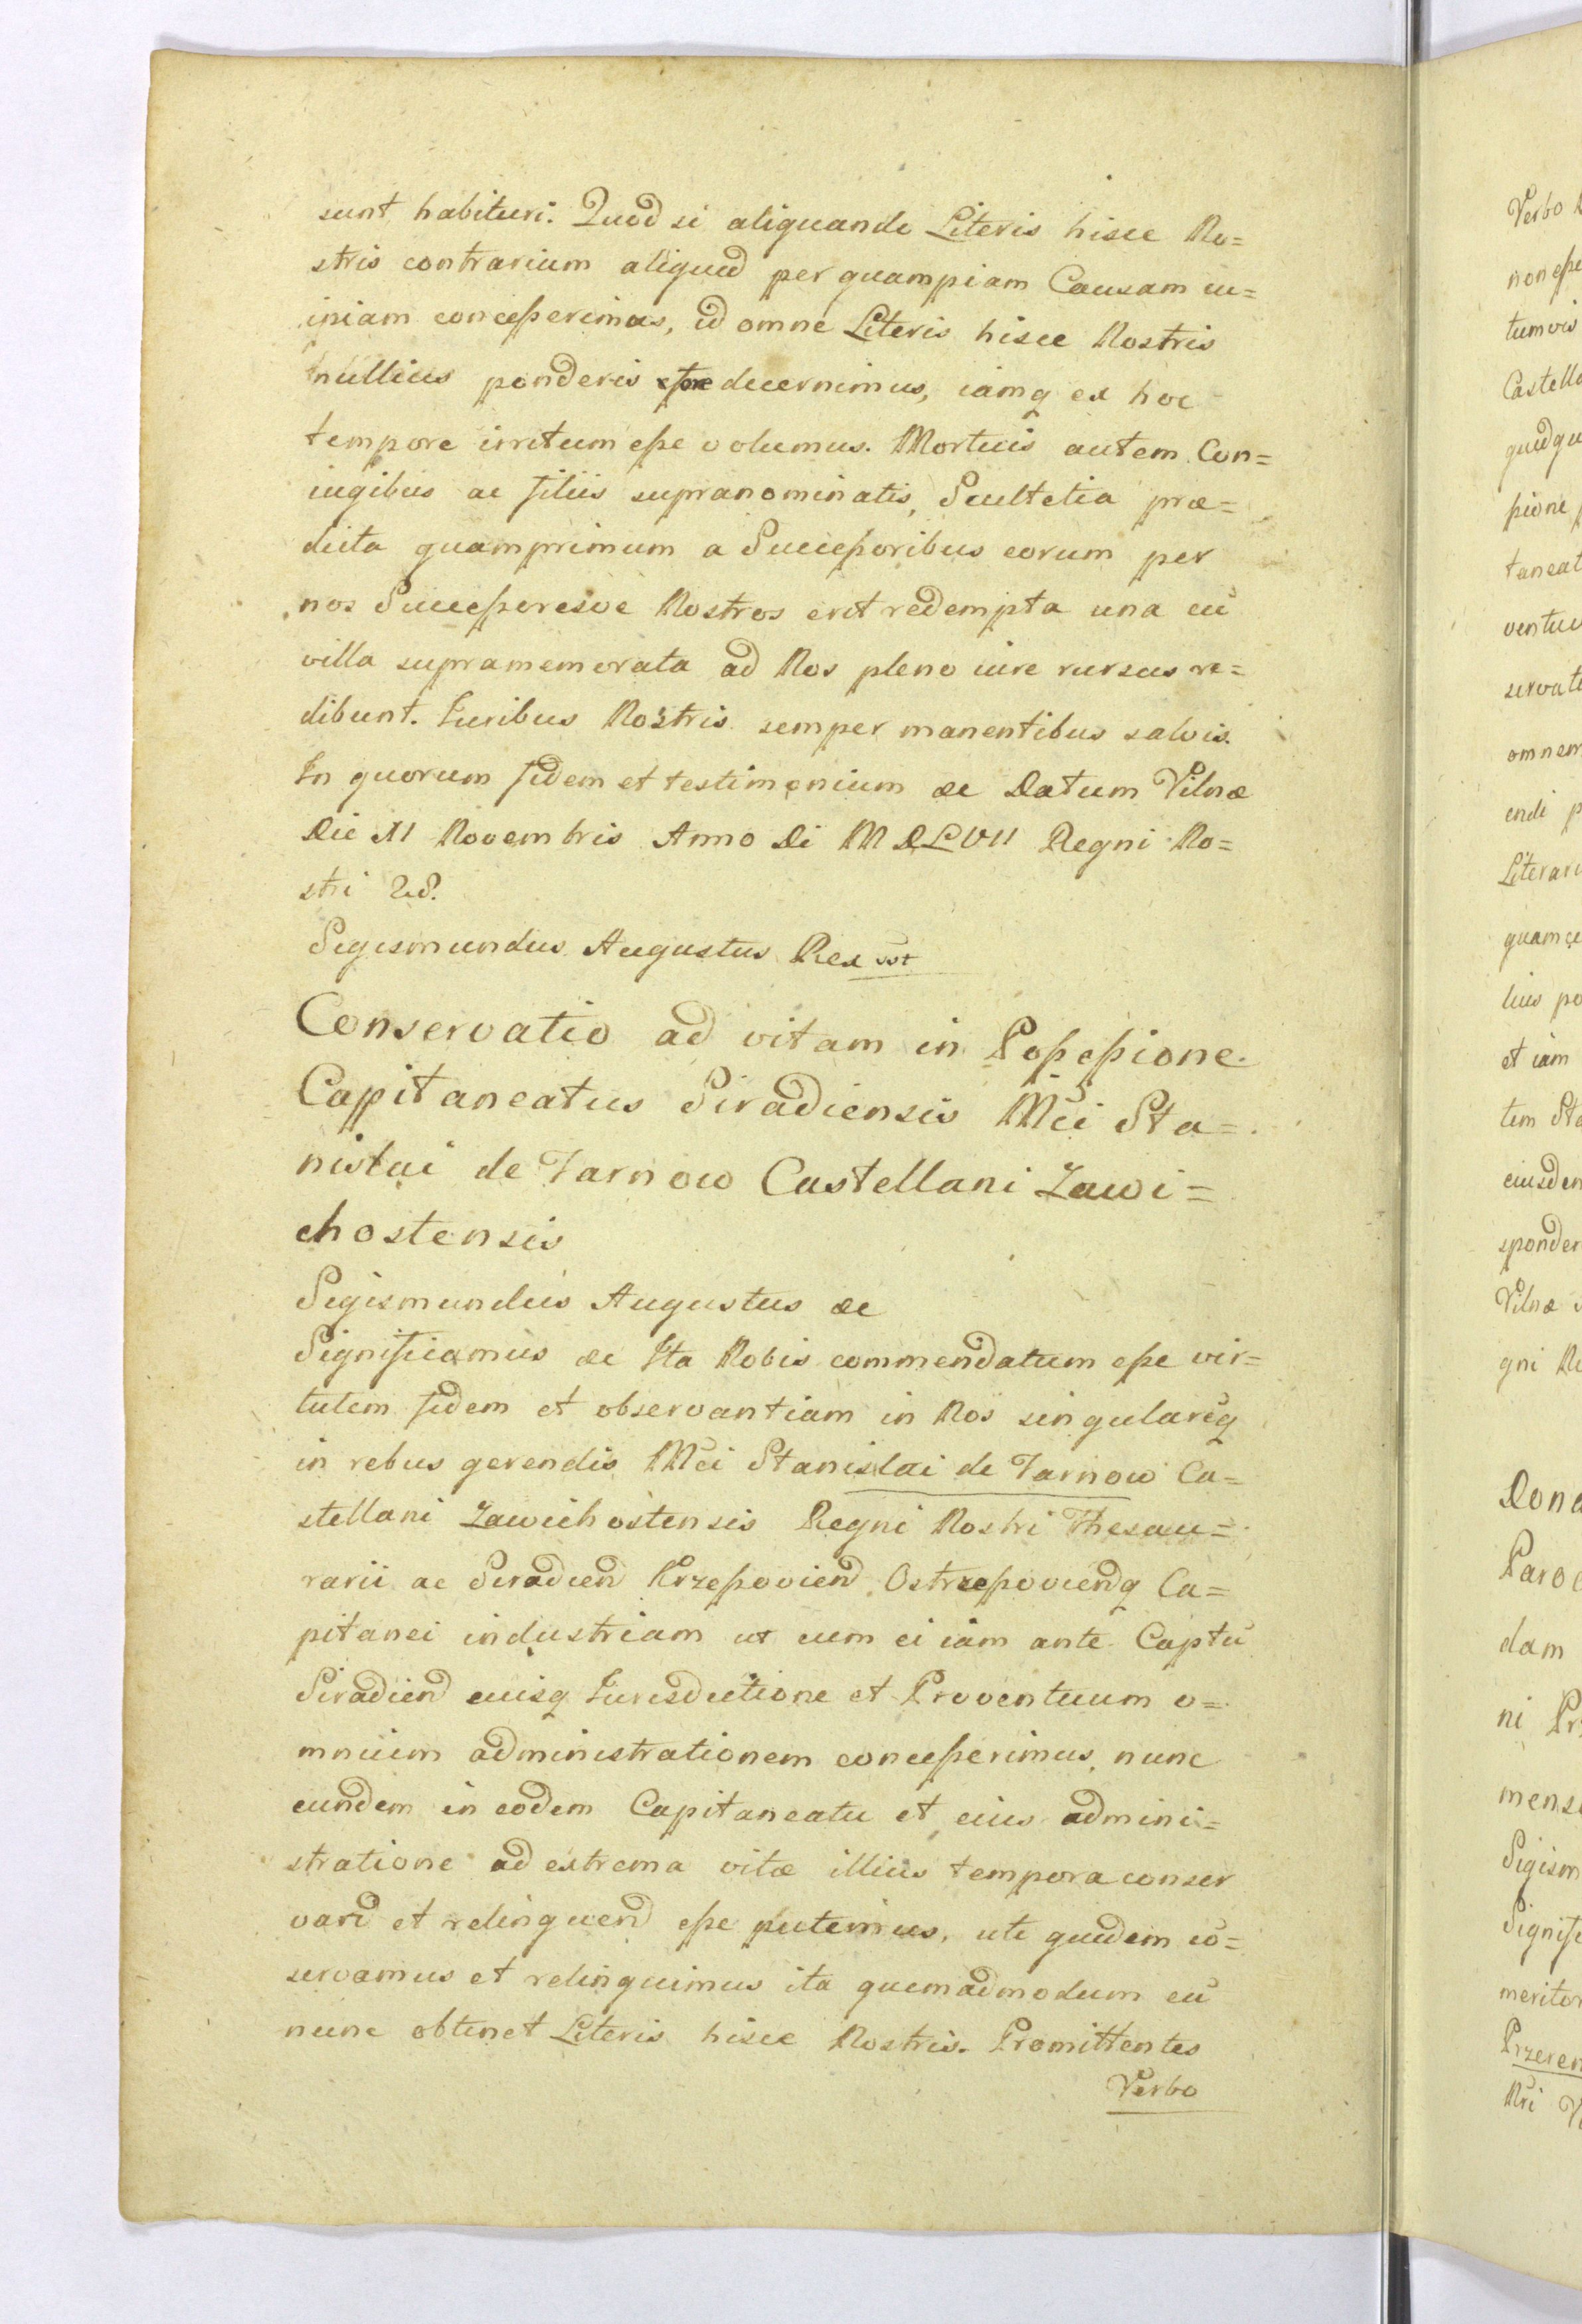 sunt habituri. Quod si aliquando Literis hisce No=
stris contrarium aliquid per quampiam Causam cu=
ipiam concesserimus, id omne Literis hisce Nostris
nullius ponderis fore decernimus, iamq ex hoc
tempore irritum esse volumus. Mortuis autem Con=
iugibus ac filiis supranominatis, Scultetia præ=
dicta quamprimum a Successoribus eorum per
nos Successoresve Nostros erit redempta una cū
villa supramemorata ad Nos pleno iure rursus re=
dibunt. Iuribus Nostris semper manentibus salvis.
In quorum fidem et testimonium &c Datum Vilnæ
Die XI Novembris Anno Di MDLVII Regni No=
stri 28.
Sigismundus Augustus Rex sst
Conservatio ad vitam in Possessione
Capitaneatus Siradiensis Mci Sta=
nislai de Tarnow Castellani Zawi=
chostensis
Sigismundus Augustus &c
Significamus &c Ita Nobis commendatum esse vir=
tutem fidem et observantiam in Nos singularēq
in rebus gerendis Mci Stanislai de Tarnow Ca=
stellani Zawichostensis Regni Nostri Thesau=
rarii ac Siradien Krzepovien Ostrzepovienq Ca=
pitanei industriam ut cum ei iam ante Captū
Siradien cuisq Iurisdictione et Proventuum o=
mnium administrationem concesserimus, nunc
eundem in eodem Capitaneatu et eius admini=
stratione ad extrema vitæ illius tempora conser
vand et relinquend esse putemus, uti quidem cō=
servamus et relinquimus ita quemadmodum eū
nunc obtinet Literis hisce Nostris. Promittentes
Verbo